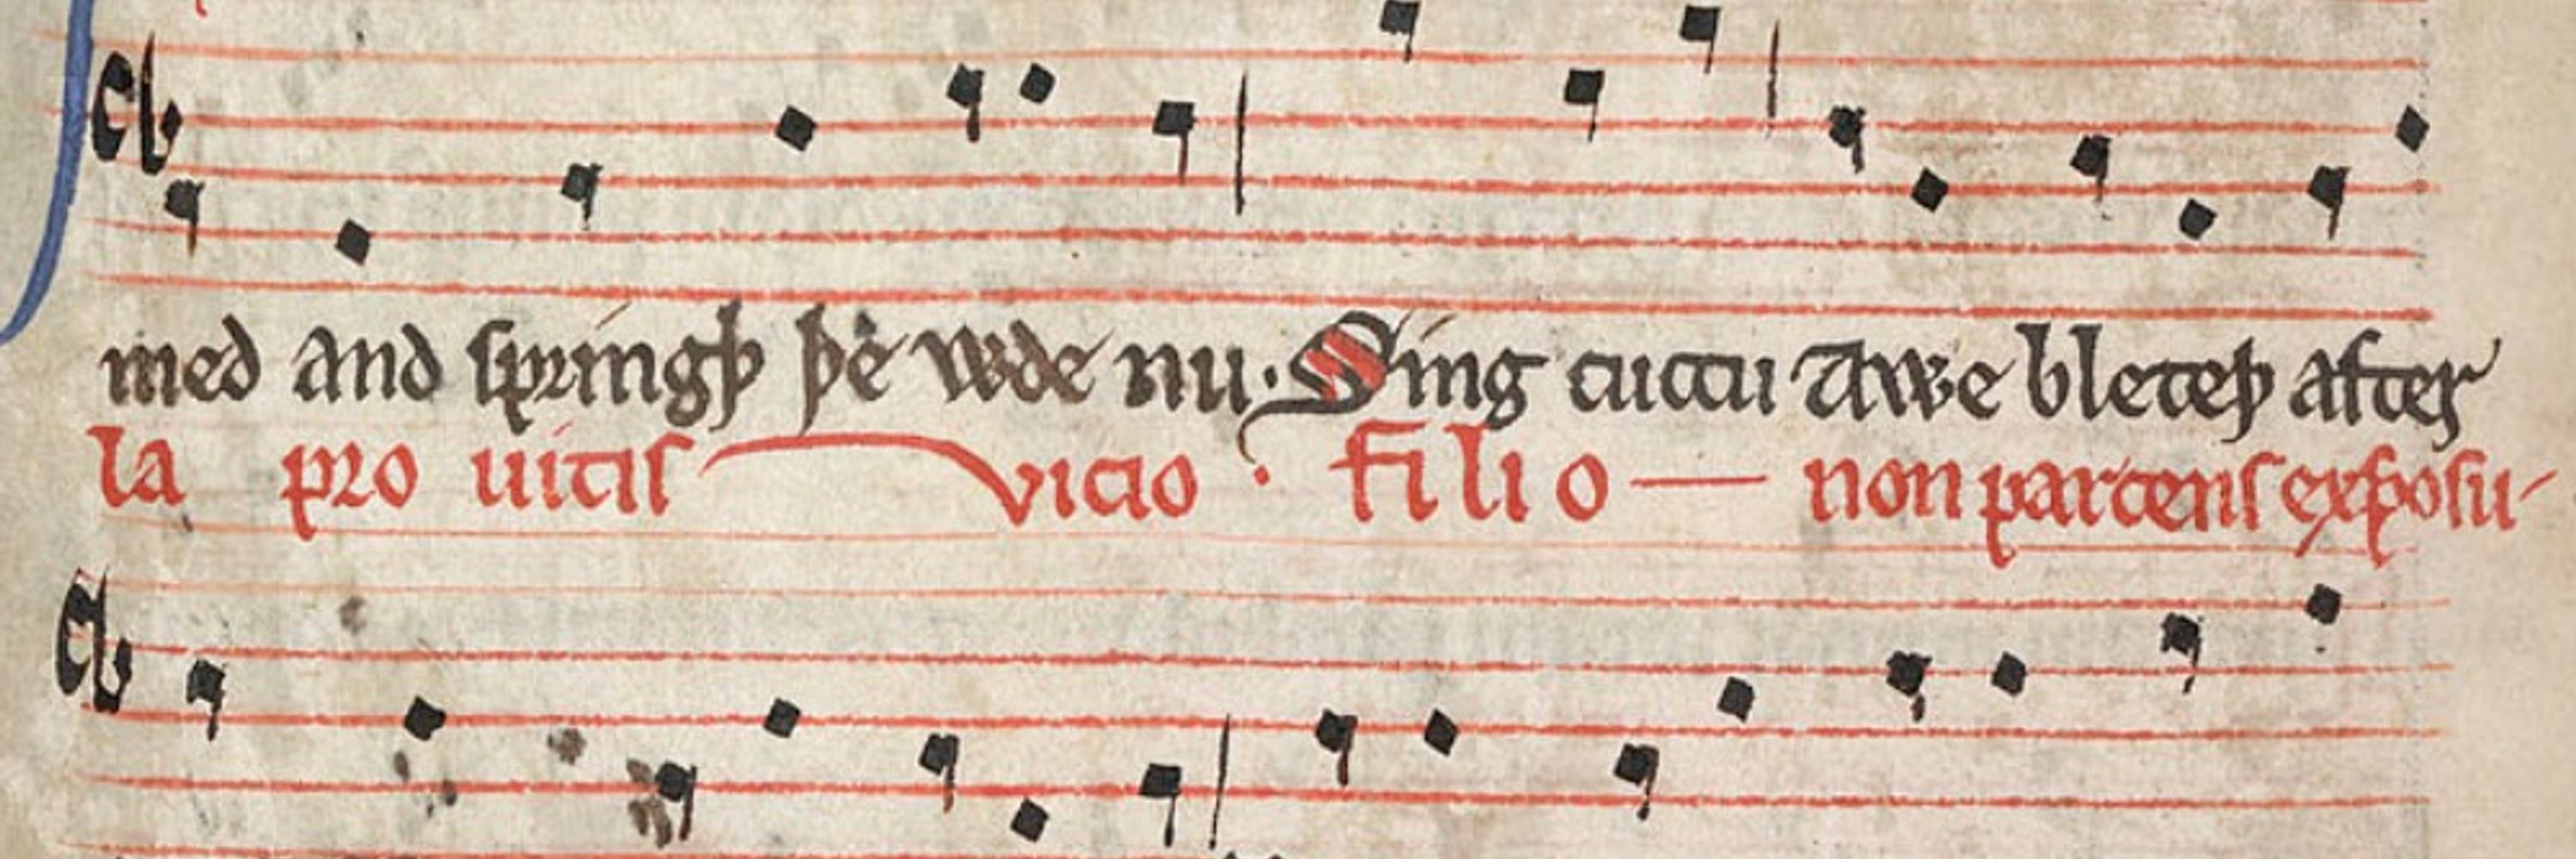 med and springþ þe wde nu. Sing cuccu Awe bleteþ after
la pro uitis vicio. filio — non parcens exposu-